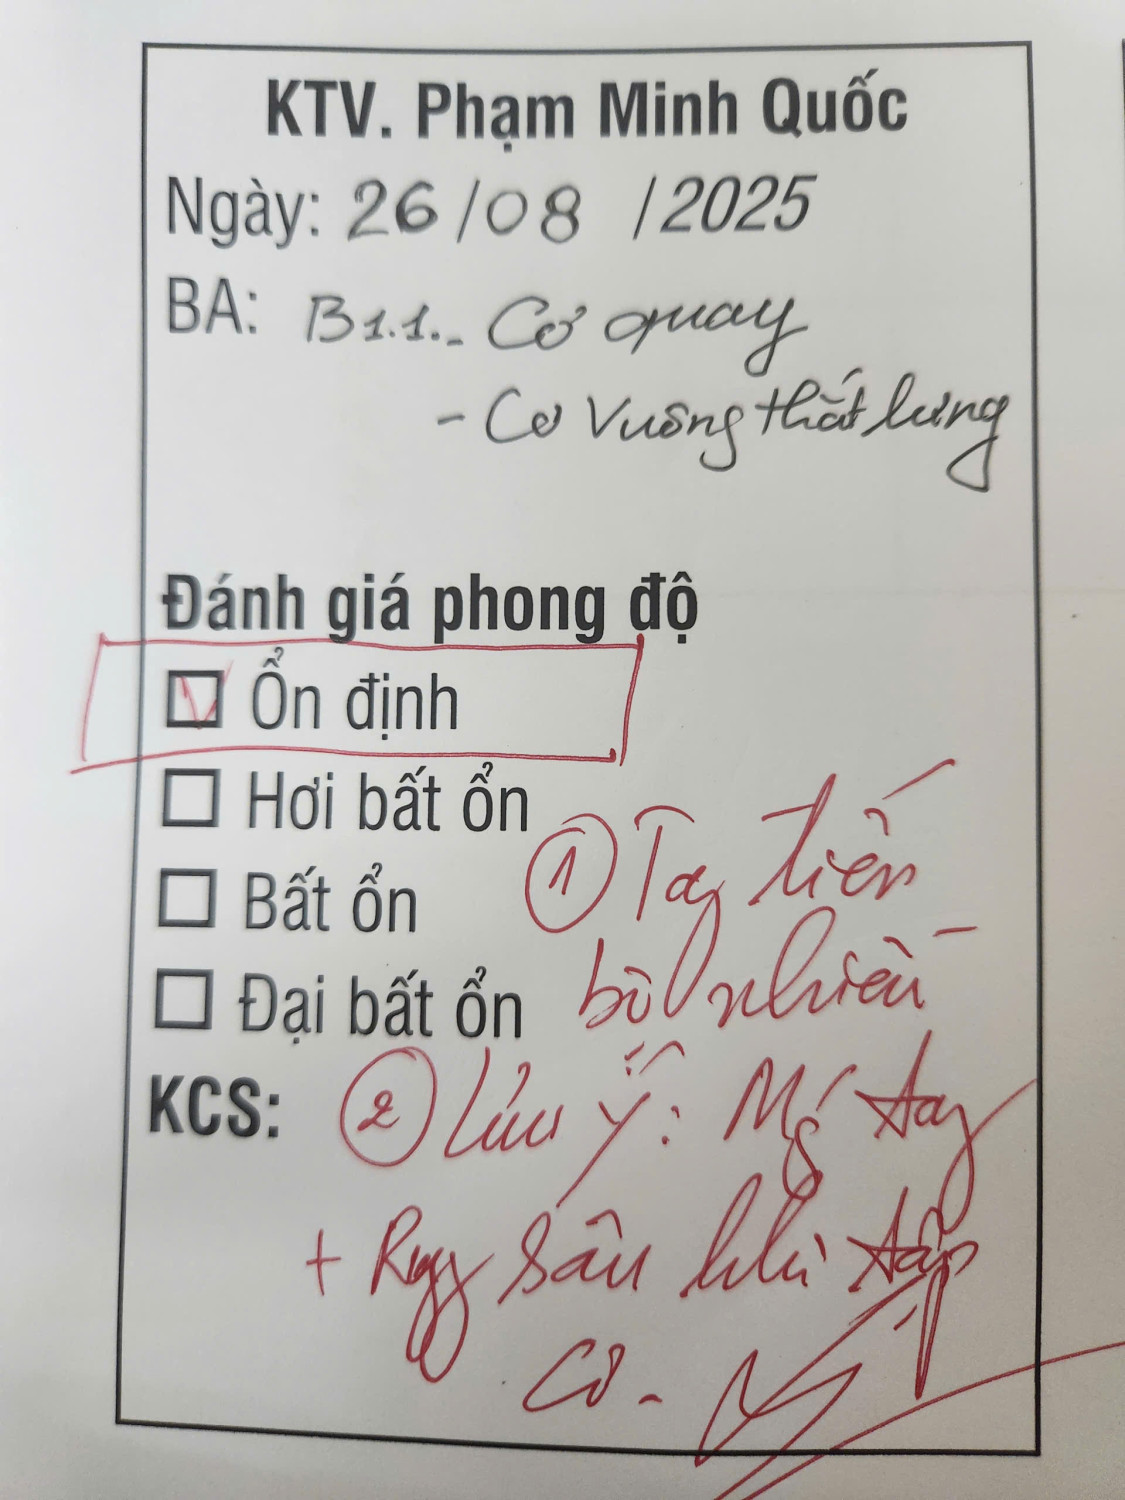 KTV. Phạm Minh Quốc
Ngày: 26/08 /2025
BA: B1.1.- Cơ quay
- Cơ vuông thắt lưng
Đánh giá phong độ
Ổn định
Hơi bất ổn
Bất ổn
Đại bất ổn
① Tay tiến
bộ nhiều
KCS: ② Lưu ý: tay
+ sâu khi tập
cơ.